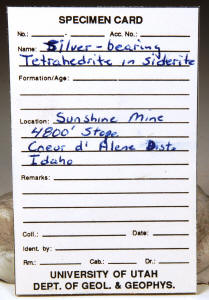 SPECIMEN CARD
No.: - Acc. No.:
Name: Silver-bearing
Tetrahedrite in siderite
Formation/Age:
Location: Sunshine Mine
4800' Stope
Coeur d' Alene Dist.
Idaho
Remarks:
Coll.: Date:
Ident. by:
Rm.: Cab.: Dr.:
UNIVERSITY OF UTAH
DEPT. OF GEOL. & GEOPHYS.